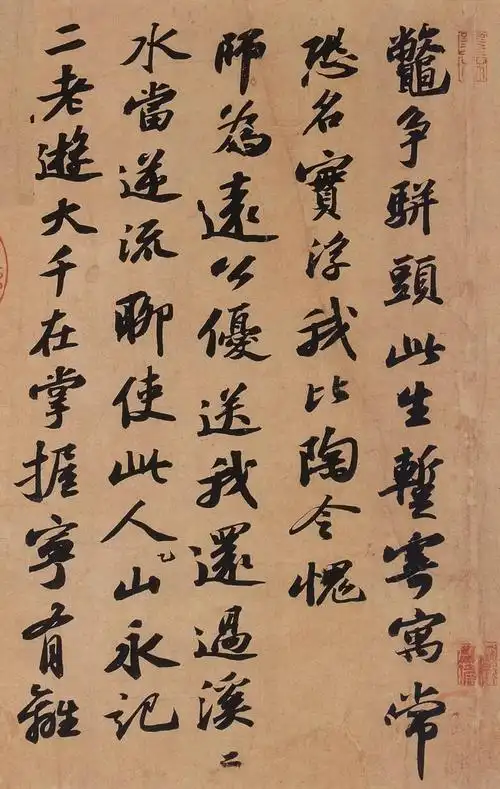 鼈争駢頭此生暫寄寓常
恐名實浮我比陶令愧
師為遠公優送我還過溪二
水當逆流聊使此人山永記
二老遊大千在掌握寧有離